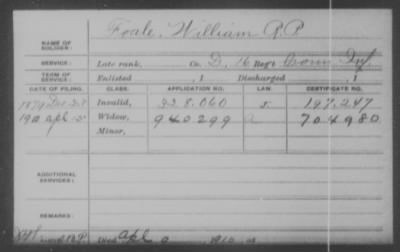 Foale, William P.P.
NAME OF SOLDIER:
SERVICE: Late rank, Co. D, 16 Reg't Conn. Inf.
TERM OF SERVICE: Enlisted , 1 Discharged , 1
DATE OF FILING. CLASS. APPLICATION NO. LAW. CERTIFICATE NO.
1879 Dec Invalid, 328.060 197.247
1910 Apl Widow, 940299 a 704980
Minor,
ADDITIONAL SERVICES:
REMARKS:
Died Apl 9 1910